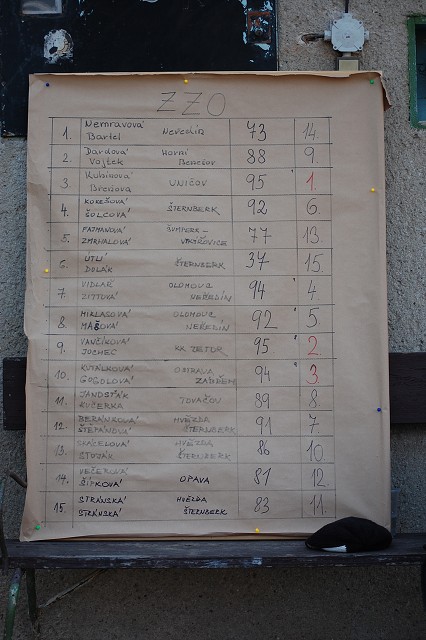 ZZO
1. Nemravová Neředín 73 14.
Bartel
2. Dardová Horní 88 9.
Vojtek Benešov
3. Kubínová UNIČOV 95 1.
Březinová
4. KOREŠOVÁ ŠTERNBERK 92 6.
ŠOLCOVÁ
5. FAJMANOVÁ ŠUMPERK - 77 13.
ZMRHALOVÁ VIKÝŘOVICE
6. ÚTLÍ ŠTERNBERK 37 15.
DOLÁK
7. VIDLÁŘ OLOMOUC 94 4.
ZITTOVÁ NEŘEDÍN
8. MIKLASOVÁ OLOMOUC 92 5.
MAŠOVÁ NEŘEDÍN
9. VANČÍKOVÁ KK ZETOR 95 2.
JOCHEC
10. KUTÁLKOVÁ OSTRAVA 94 3.
GOGOLOVÁ ZÁBŘEH
11. JANDSŤÁK TOVAČOV 89 8.
KUČERKA
12. BERÁNKOVÁ HVĚZDA 91 7.
ŠTĚPÁNOVÁ ŠTERNBERK
13. SKÁCELOVÁ HVĚZDA 86 10.
STOJÁK ŠTERNBERK
14. VEČEŘOVÁ OPAVA 81 12.
ŠÍPKOVÁ
15. STRÁNSKÁ HVĚZDA 83 11.
STRÁNSKÁ ŠTERNBERK